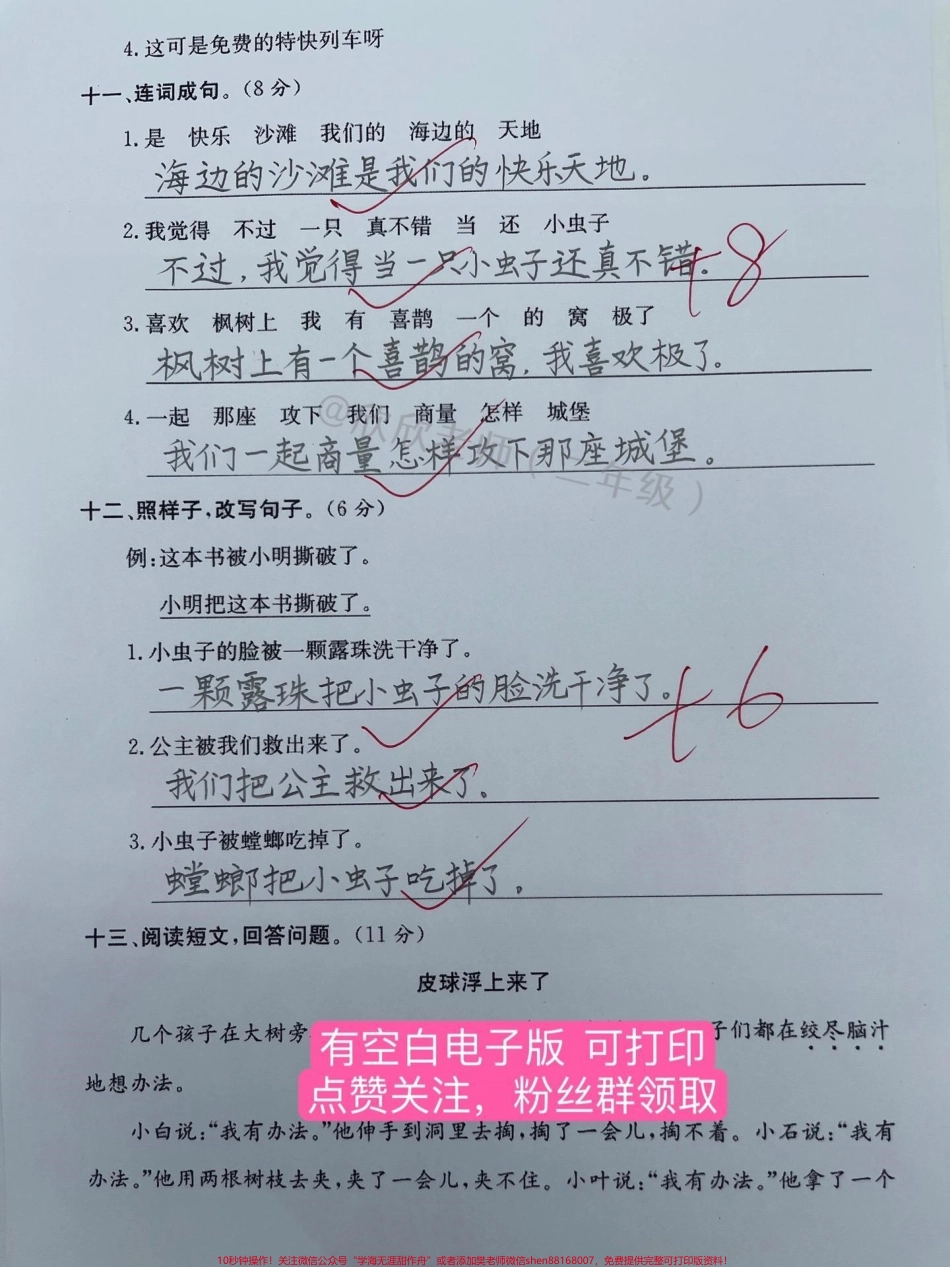 4.这可是免费的特快列车呀
十一、连词成句。(8分)
1.是 快乐 沙滩 我们的 海边的 天地
海边的沙滩是我们的快乐天地。
2.我觉得 不过 一只 真不错 当 还 小虫子
不过,我觉得当一只小虫子还真不错。
+8
3.喜欢 枫树上 我 有 喜鹊 一个 的 窝 极了
枫树上有一个喜鹊的窝,我喜欢极了。
4.一起 那座 攻下 我们 商量 怎样 城堡
@欣欣老师(二年级)
我们一起商量怎样攻下那座城堡。
十二、照样子,改写句子。(6分)
例:这本书被小明撕破了。
小明把这本书撕破了。
1.小虫子的脸被一颗露珠洗干净了。
一颗露珠把小虫子的脸洗干净了。
+6
2.公主被我们救出来了。
我们把公主救出来了。
3.小虫子被螳螂吃掉了。
螳螂把小虫子吃掉了。
十三、阅读短文,回答问题。(11分)
皮球浮上来了
几个孩子在大树旁 子们都在绞尽脑汁
有空白电子版 可打印
点赞关注,粉丝群领取
地想办法。
小白说:“我有办法。”他伸手到洞里去掏,掏了一会儿,掏不着。小石说:“我有
办法。”他用两根树枝去夹,夹了一会儿,夹不住。小叶说:“我有办法。”他拿了一个
10秒钟操作!关注微信公众号“学海无涯甜作舟”或者添加樊老师微信shen88168007,免费提供完整可打印版资料!